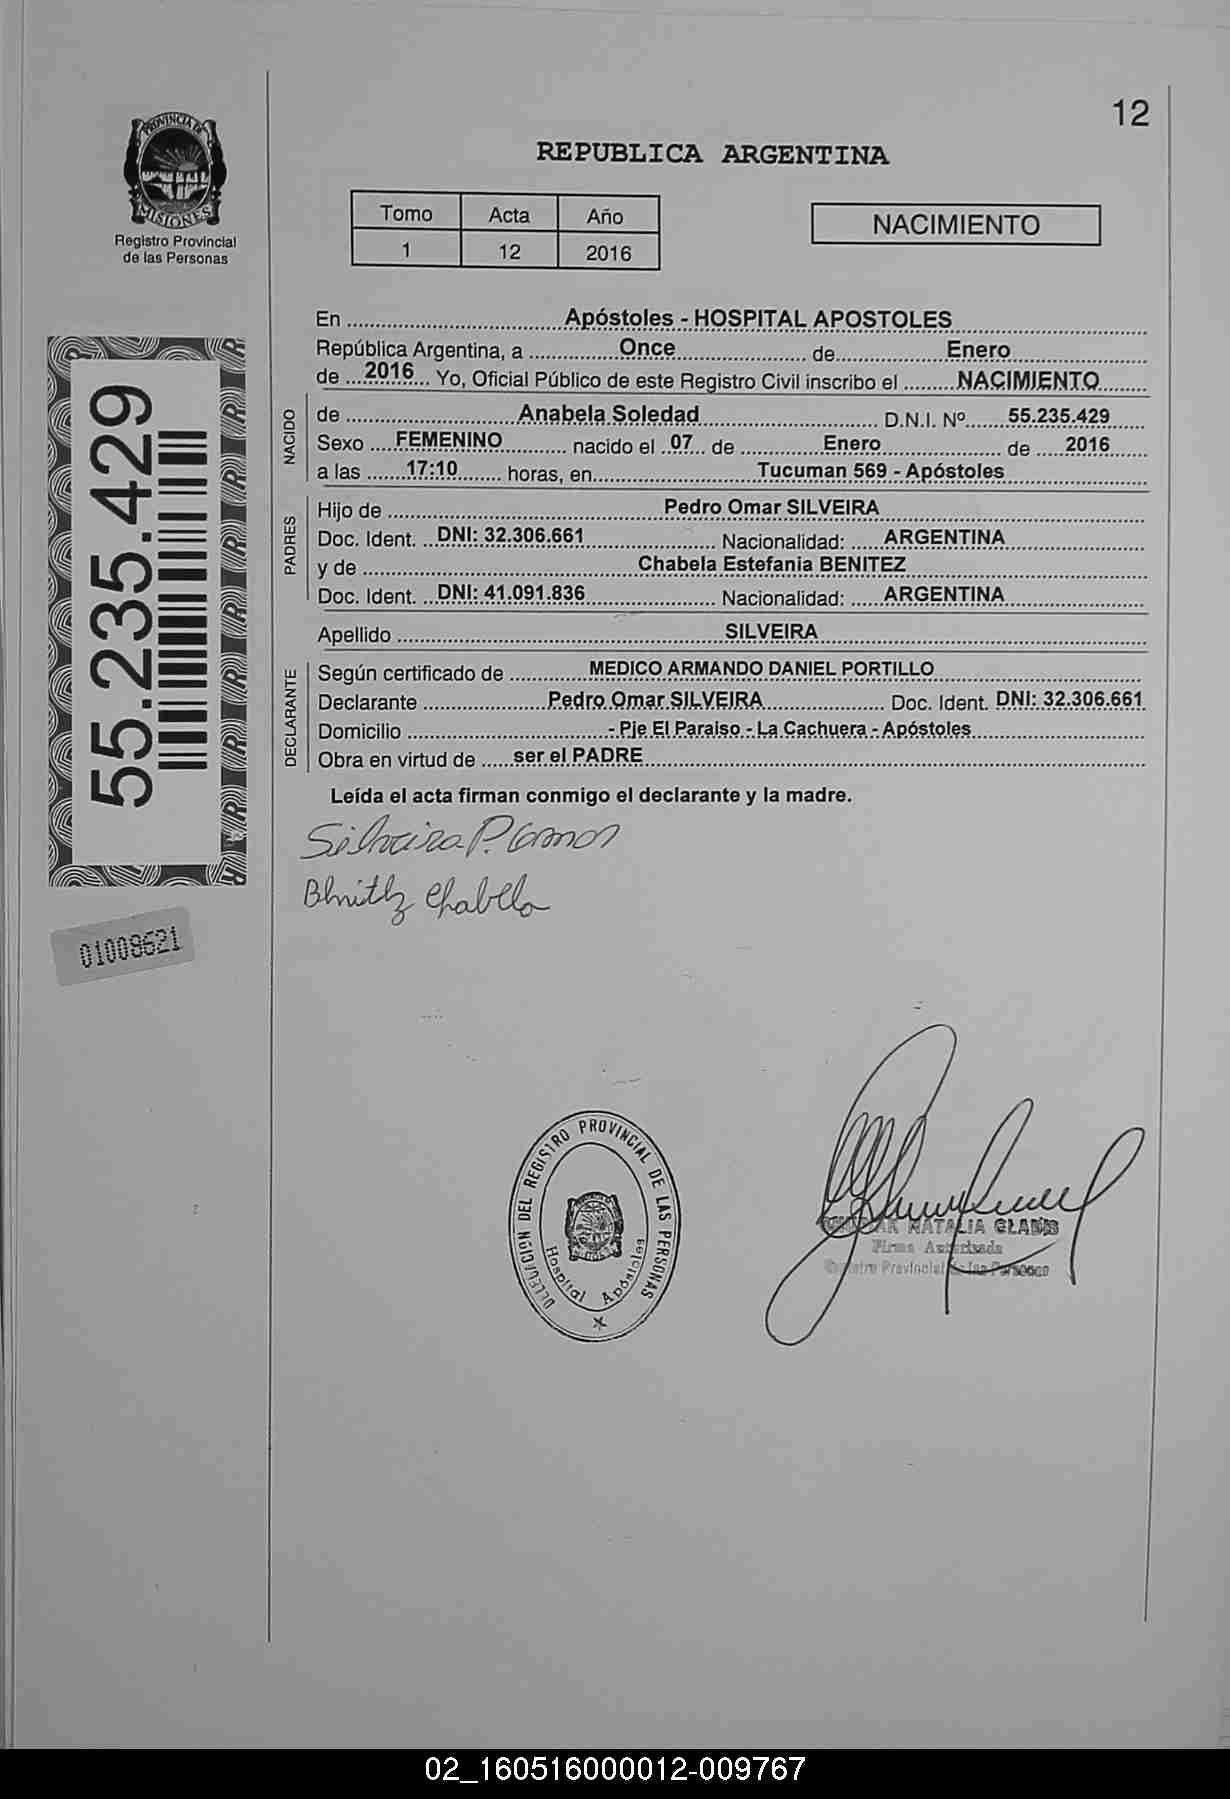 12
PROVINCIA DE
MISIONES
Registro Provincial
de las Personas
REPUBLICA ARGENTINA
Tomo Acta Año
1 12 2016
NACIMIENTO
En Apóstoles - HOSPITAL APOSTOLES
República Argentina, a Once de Enero
de 2016 Yo, Oficial Público de este Registro Civil inscribo el NACIMIENTO
NACIDO
de Anabela Soledad D.N.I. Nº 55.235.429
Sexo FEMENINO nacido el 07 de Enero de 2016
a las 17:10 horas, en Tucuman 569 - Apóstoles
PADRES
Hijo de Pedro Omar SILVEIRA
Doc. Ident. DNI: 32.306.661 Nacionalidad: ARGENTINA
y de Chabela Estefania BENITEZ
Doc. Ident. DNI: 41.091.836 Nacionalidad: ARGENTINA
Apellido SILVEIRA
DECLARANTE
Según certificado de MEDICO ARMANDO DANIEL PORTILLO
Declarante Pedro Omar SILVEIRA Doc. Ident. DNI: 32.306.661
Domicilio - Pje El Paraiso - La Cachuera - Apóstoles
Obra en virtud de ser el PADRE
Leída el acta firman conmigo el declarante y la madre.
Silveira P. Omar
Benitez Chabela
55.235.429
01008621
DELEGACION DEL REGISTRO PROVINCIAL DE LAS PERSONAS
Hospital Apóstoles
NATALIA GLADIS
Firma Autorizada
Registro Provincial de las Personas
02_160516000012-009767